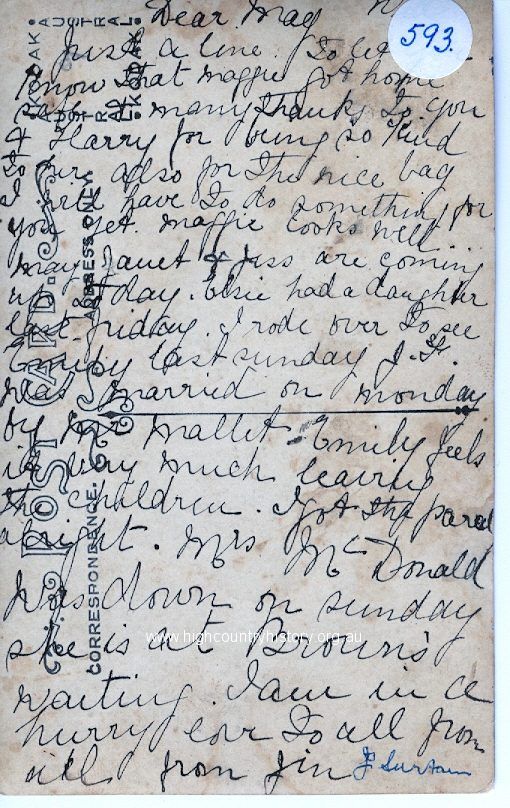 Dear May
593.
Just a line to let
know that maggie got home
many thanks to you
& Harry for being so kind
to her also for the nice bag
I will have to do something for
you yet. maggie looks well
may Janet & Jess are coming
up today. Elsie had a daughter
last friday. I rode over to see
Emily last sunday J. F.
was married on monday
by Mr mallet. Emily feels
it very much leaving
the children. I got the parcel
alright. Mrs McDonald
was down on sunday
she is at Brown's
waiting. I am in a
hurry love to all from
all from Jim
POST CARD
CORRESPONDENCE.
ADDRESS ONLY
KODAK AUSTRAL
www.highcountryhistory.org.au